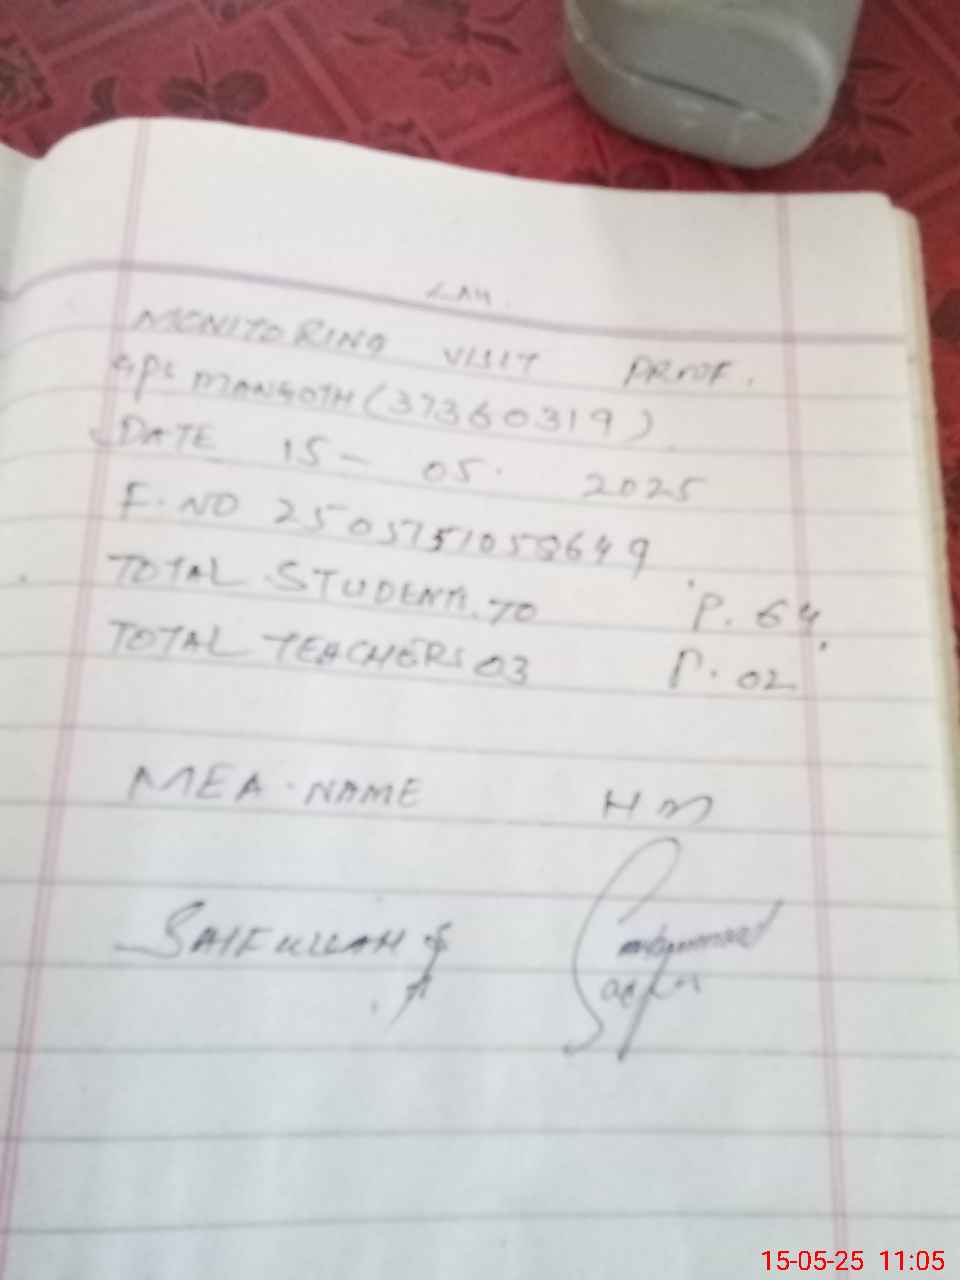 MONITORING VISIT PROOF.
GPS MANGOTH (37360319)
DATE 15-05-2025
F.NO 2505751058649
TOTAL STUDENTS. 70 P. 64
TOTAL TEACHERS 03 P. 02
MEA. NAME HM
SAIFULLAH
Muhammad
15-05-25 11:05